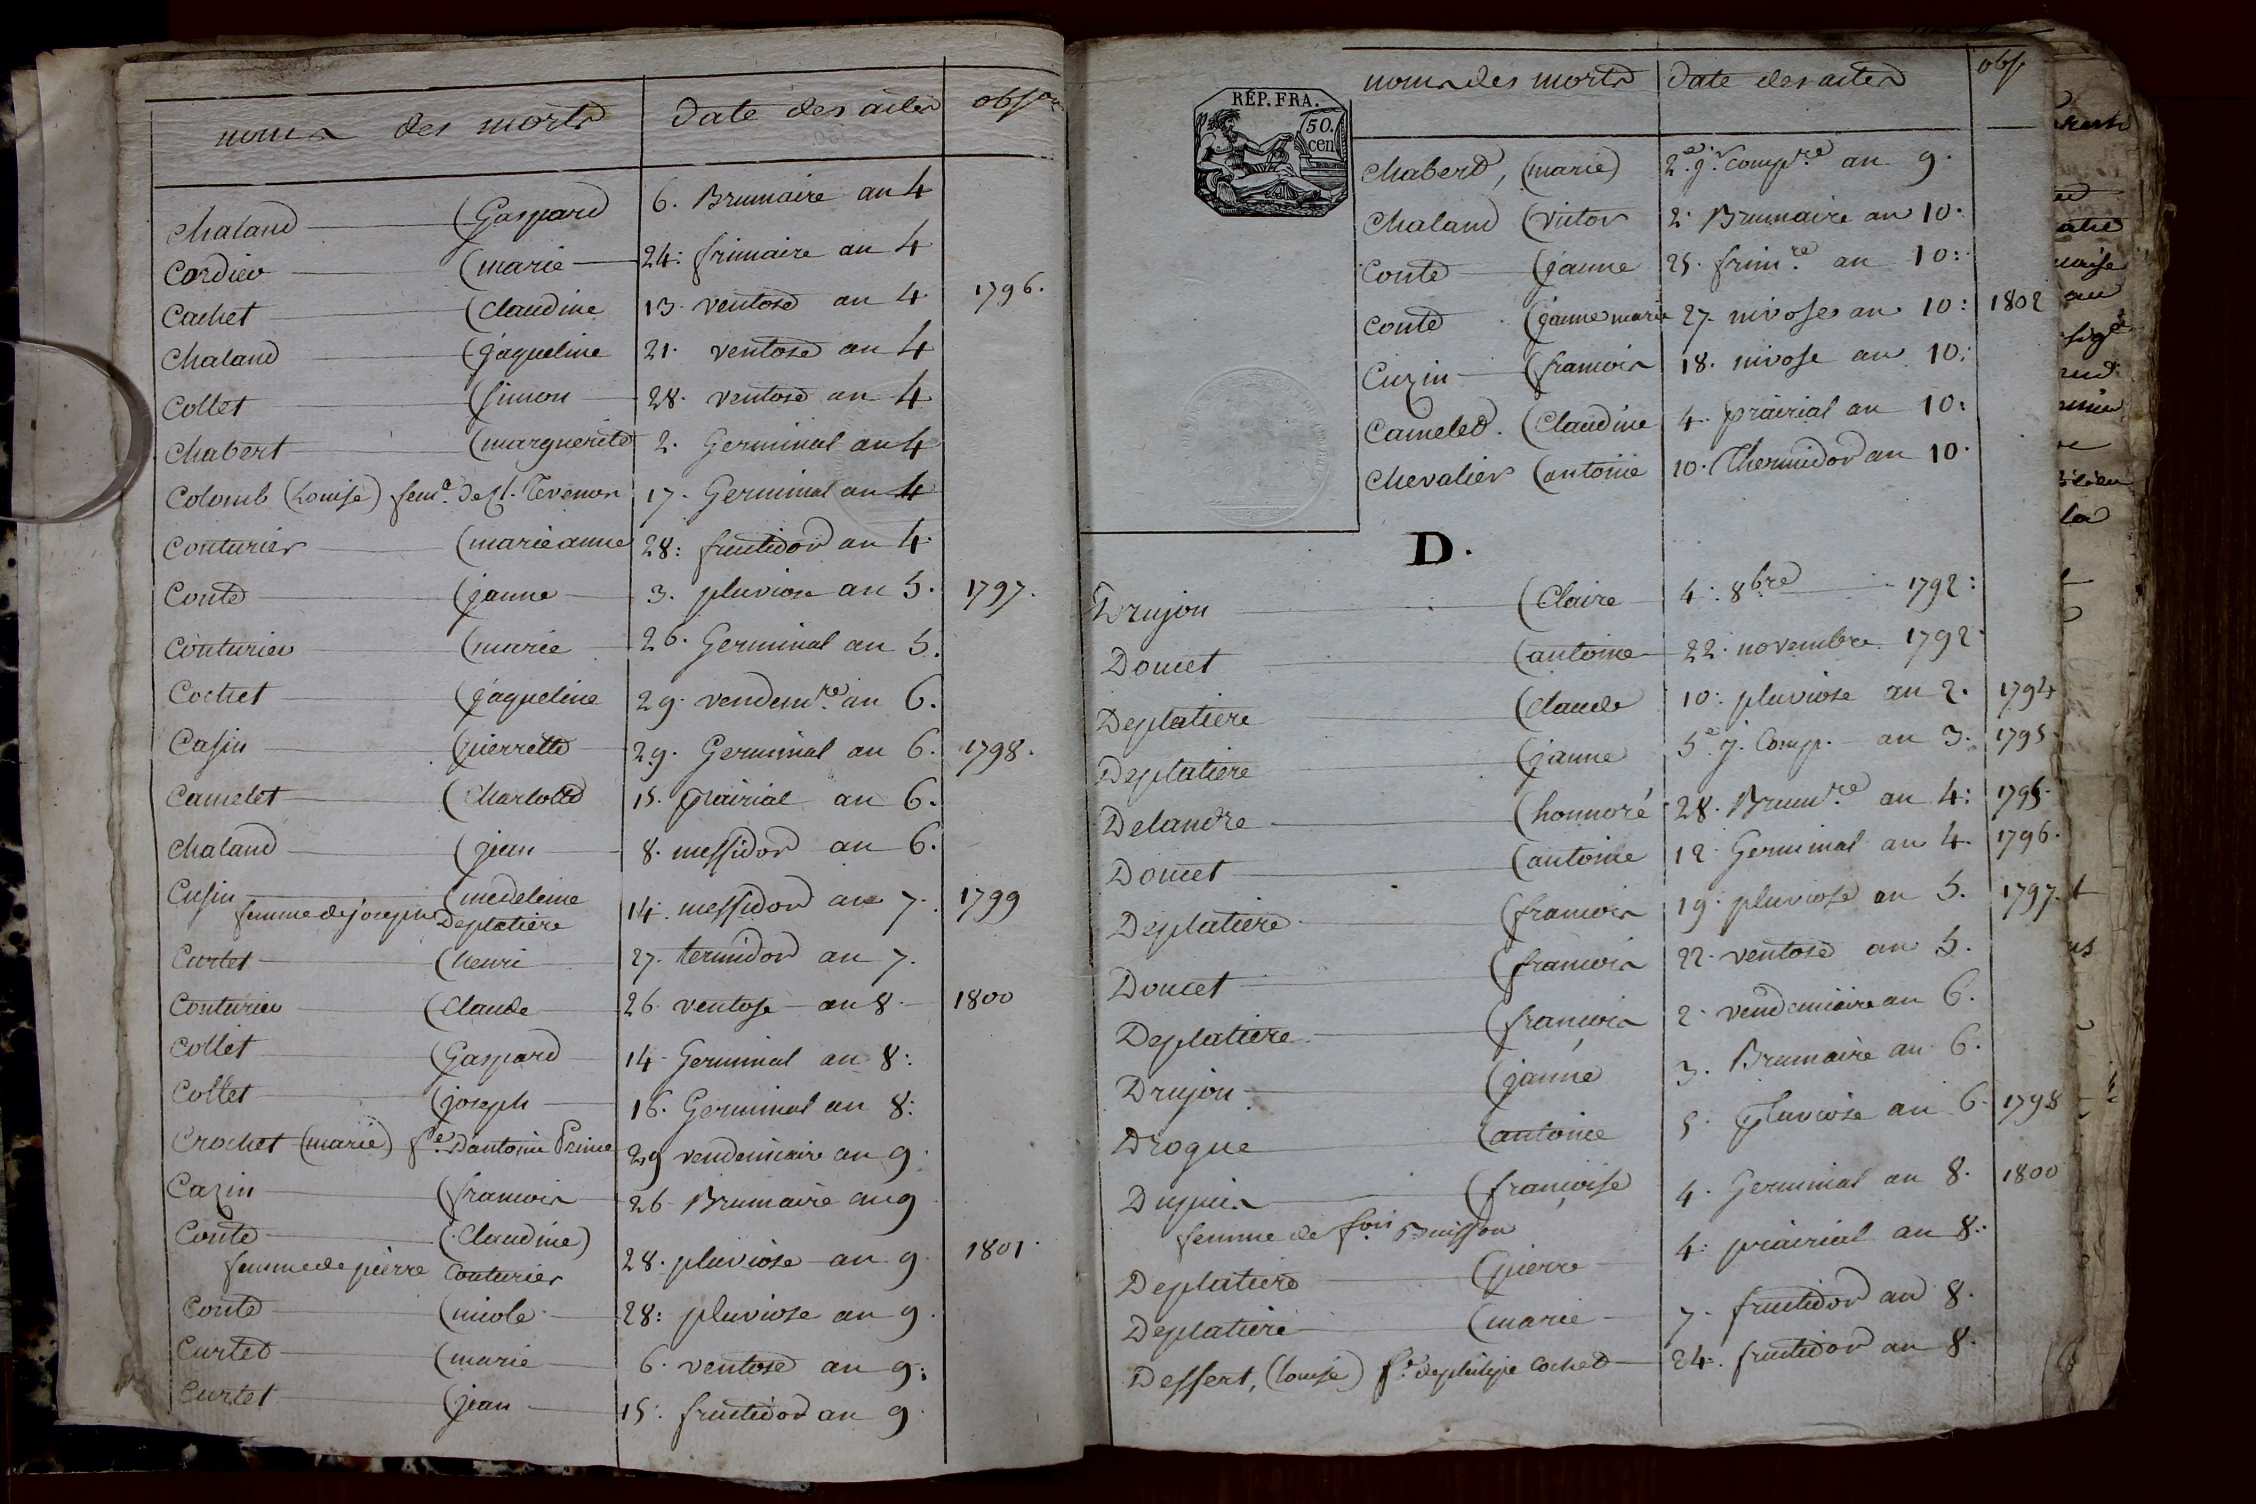 noms des morts date des actes obs.on
Chaland (Gaspard 6. Brumaire an 4
Cordier (marie 24: frimaire an 4
Cachet (Claudine 13. ventose an 4. 1796.
Chaland (jaqueline 21. ventose an 4
Collet (simon 28. ventose an 4
Chabert (marguerite 2. Germinal an 4
Colomb (Louise) fem.e de Cl. Tevenon 17. Germinal an 4
Couturier (marie anne 28: fructidor an 4.
Conte (janne 3. pluviose an 5. 1797.
Couturier (marie 26. Germinal an 5.
Cochet (jaqueline 29. vendem.re an 6.
Casin (pierrette 29. Germinal an 6. 1798.
Camelet (Charlotte 15. prairial an 6.
Chaland (jean 8. messidor an 6.
Cusin (medeleine
femme de joseph Deplatière 14. messidor an 7. 1799
Curtet (henri 27. termidor an 7.
Couturier (Claude 26. ventose an 8. 1800
Collet (Gaspard 14. Germinal an 8:
Collet (joseph 16. Germinal an 8:
Crochet (marie) f.e d'antoine Prime 29 vendemiaire an 9.
Cazin (francois 26. Brumaire an 9
Conte (Claudine)
femme de pierre Couturier 28. pluviose an 9. 1801.
Conte (nicole 28: pluviose an 9.
Curtet (marie 6. ventose an 9:
Curtet (jean 15. fructidor an 9.
RÉP. FRA.
50.
cen
noms des morts date des actes obs
Chabert, (marie) 2.e j.r comp.re an 9.
Chaland (victor 2. Brumaire an 10.
Conte (janne 25. frim.re an 10:
Conte (janne marie 27. nivose an 10: 1802
Cuzin (francois 18. nivose an 10:
Camelet. (Claudine 4. prairial an 10:
Chevalier (antoine 10. Thermidor an 10.
D.
Drujon (Claire 4. 8bre 1792:
Doucet (antoine 22. novembre 1792.
Deplatiere (claude 10: pluviose an 2. 1794
Deplatiere (janne 5.e j. Comp. an 3. 1795.
Delandre (honnoré 28. Brum.re an 4: 1795.
Doucet (antoine 12. Germinal an 4. 1796.
Deplatiere (francois 19. pluviose an 5. 1797.
Doucet (francois 22. ventose an 5.
Deplatiere (francois 2. vendemiaire an 6.
Drujon (janne 3. Brumaire an 6.
Drogue (antoine 5. pluviose an 6. 1798
Dupuis (francoise 4. Germinal an 8. 1800
femme de fois Buisson
Deplatiere (pierre 4: prairial an 8.
Deplatiere (marie 7. fructidor an 8.
Dessert, (louise) f.e de philipe Cochet 24. fructidor an 8.